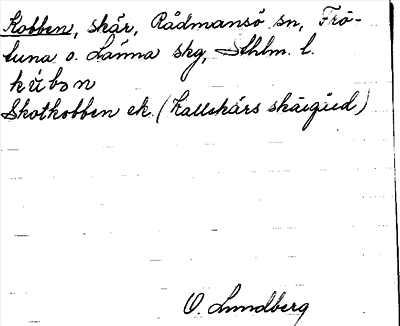 Kobben, skär, Rådmansö sn, Frö-
tuna o. Länna skg, Sthlm. l.
kúbɔn
Skotkobben ek. (Kallskärs skärgård)
O. Lundberg